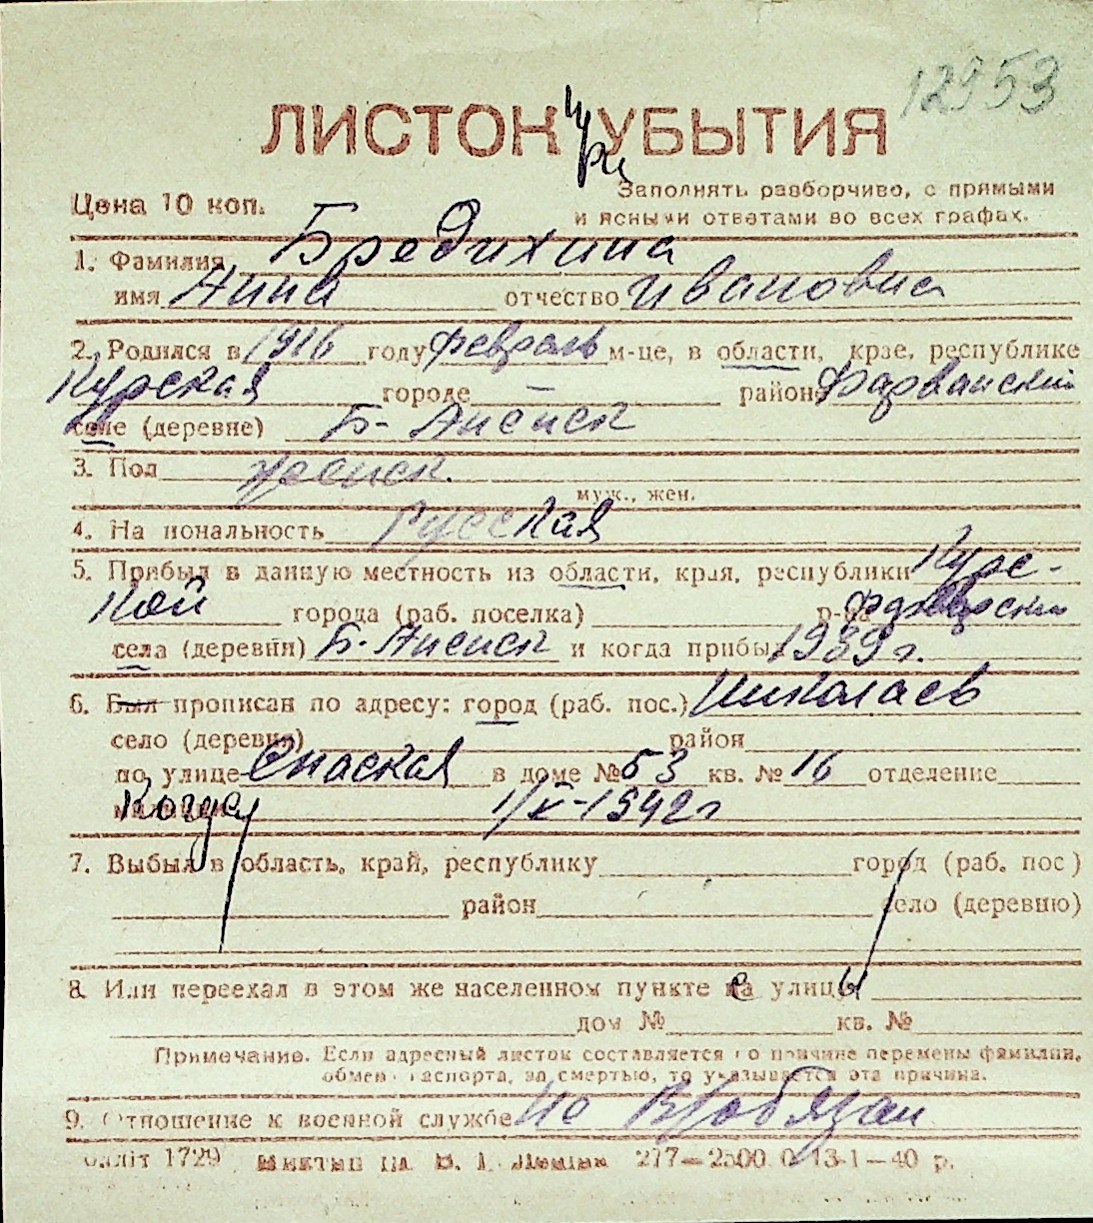 12953
ЛИСТОК при УБЫТИЯ
Цена 10 коп.
Заполнять разборчиво, с прямыми
и ясными ответами во всех графах.
1. Фамилия Бредихина
имя Анна отчество Ивановна
2. Родился в 1916 году февраль м-це, в области, крае, республике
Курская городе — район
селе (деревне) Б-
3. Пол женск.
муж., жен.
4. На иональность Русская
5. Прибыл в данную местность из области, края, республики Курс-
кой города (раб. поселка) р-на
села (деревни) Б. и когда прибыл 1939 г.
6. Был прописан по адресу: город (раб. пос.) Николаев
село (деревня) район
по улице Спаская в доме № 53 кв. № 16 отделение
Когда 1/X-1942 г
7. Выбыл в область, край, республику город (раб. пос)
район село (деревню)
8. Или переехал в этом же населенном пункте с улицы
дом № кв. №
Примечание. Если адресный листок составляется по причине перемены фамилии,
обмен паспорта, за смертью, то указывается эта причина.
9. Отношение к военной службе не В/обязан
1729 277—2500 0 13-1—40 р.